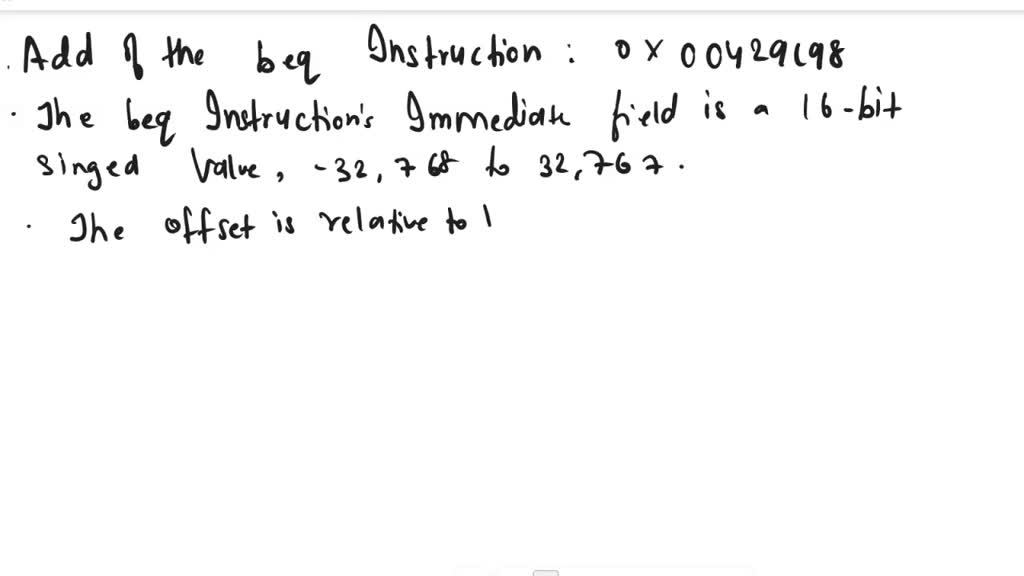 . Add of the beq Instruction : 0x00429c98
. The beq Instruction's Immediate field is a 16-bit
singed Value, -32,768 to 32,767.
. The offset is relative to